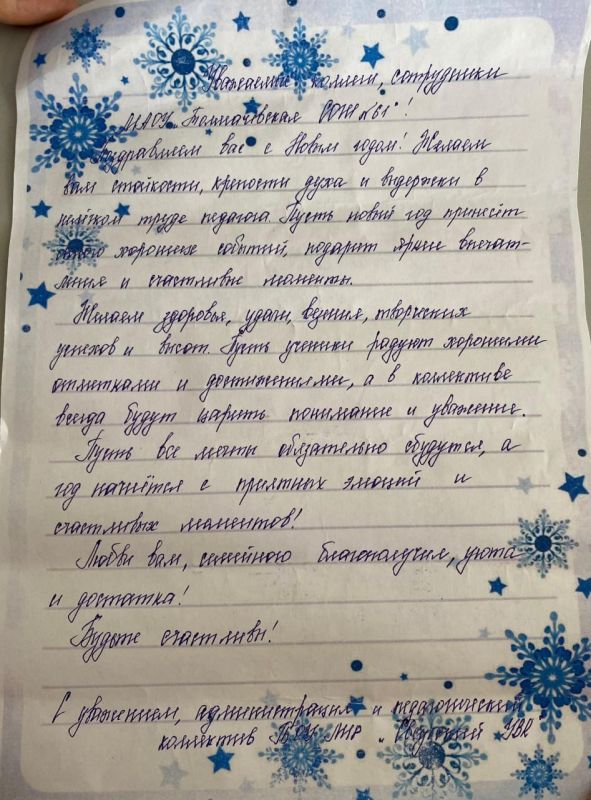 Уважаемые коллеги, сотрудники
МАОУ "Толмачёвская СОШ №61"!
Поздравляем вас с Новым годом! Желаем
вам стойкости, крепости духа и выдержки в
нелёгком труде педагога. Пусть новый год принесёт
много хороших событий, подарит яркие впечат-
ления и счастливые моменты.
Желаем здоровья, удачи, везения, творческих
успехов и высот. Пусть ученики радуют хорошими
отметками и достижениями, а в коллективе
всегда будут царить понимание и уважение.
Пусть все мечты обязательно сбудутся, а
год начнётся с приятных эмоций и
счастливых моментов!
Любви вам, семейного благополучия, уюта
и достатка!
Будьте счастливы!
С уважением, администрация и педагогический
коллектив ГБОУ ЛНР